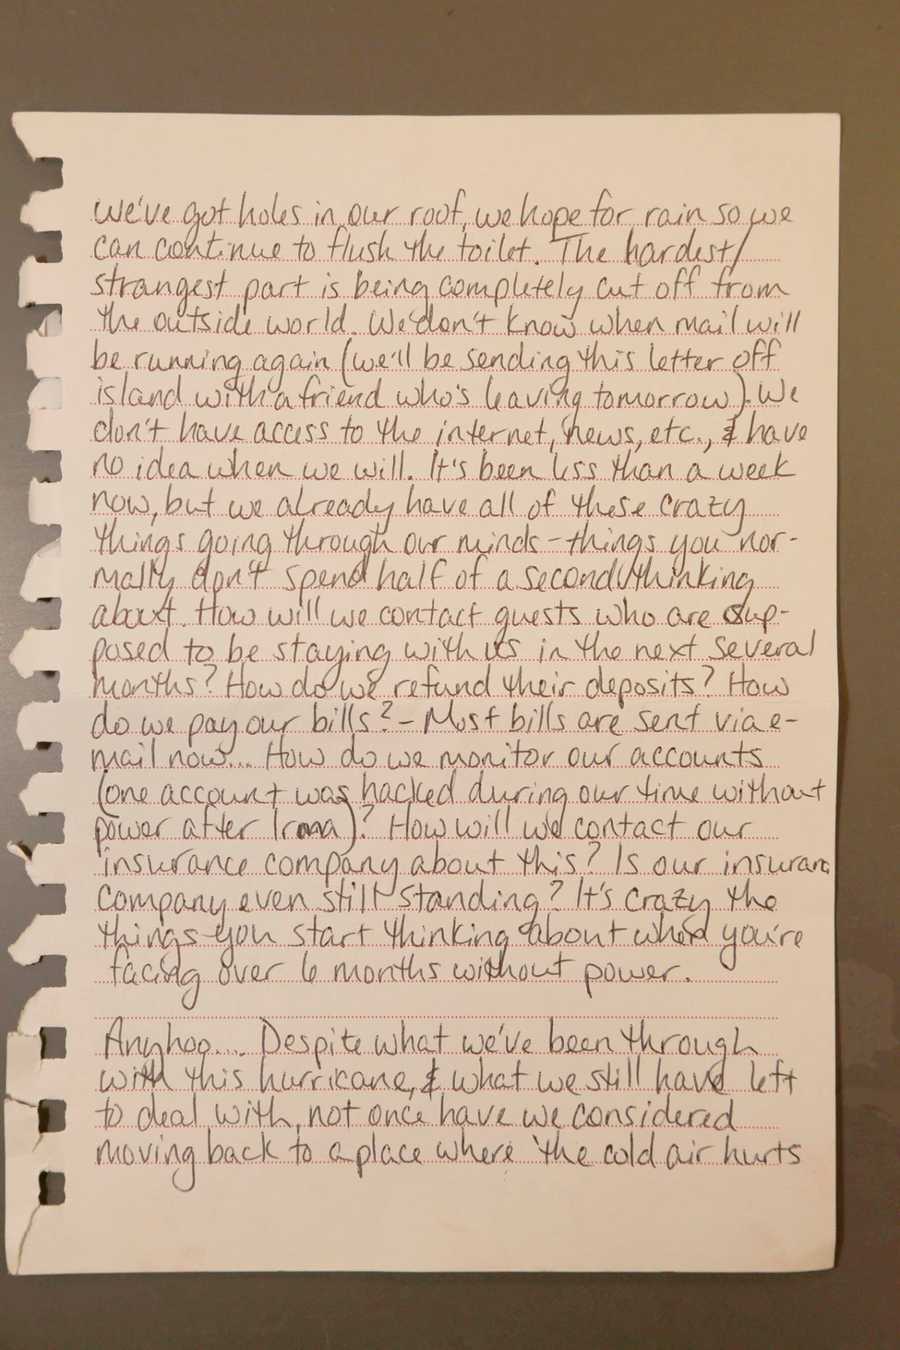 We've got holes in our roof, we hope for rain so we
can continue to flush the toilet. The hardest/
strangest part is being completely cut off from
the outside world. We don't know when mail will
be running again (we'll be sending this letter off
island with a friend who's leaving tomorrow). We
don't have access to the internet, news, etc., & have
no idea when we will. It's been less than a week
now, but we already have all of these crazy
things going through our minds - things you nor-
mally don't spend half of a second thinking
about. How will we contact guests who are sup-
posed to be staying with us in the next several
months? How do we refund their deposits? How
do we pay our bills? - Most bills are sent via e-
mail now... How do we monitor our accounts
(one account was hacked during our time without
power after Irma)? How will we contact our
insurance company about this? Is our insuranc
company even still standing? It's crazy the
things you start thinking about when you're
facing over 6 months without power.
Anyhoo.... Despite what we've been through
with this hurricane, & what we still have left
to deal with, not once have we considered
moving back to a place where 'the cold air hurts